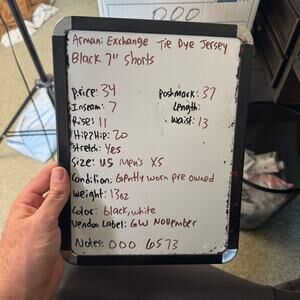 000
Armani Exchange Tie Dye Jersey
Black 7" Shorts
Price: 34 Poshmark: 37
Inseam: 7 Length:
Rise: 11 Waist: 13
Hip2Hip: 20
Stretch: Yes
Size: US Men's XS
Condition: Gently worn pre owned
Weight: 13oz
Color: black, white
Vendoo Label: GW November
Notes: 000 6573